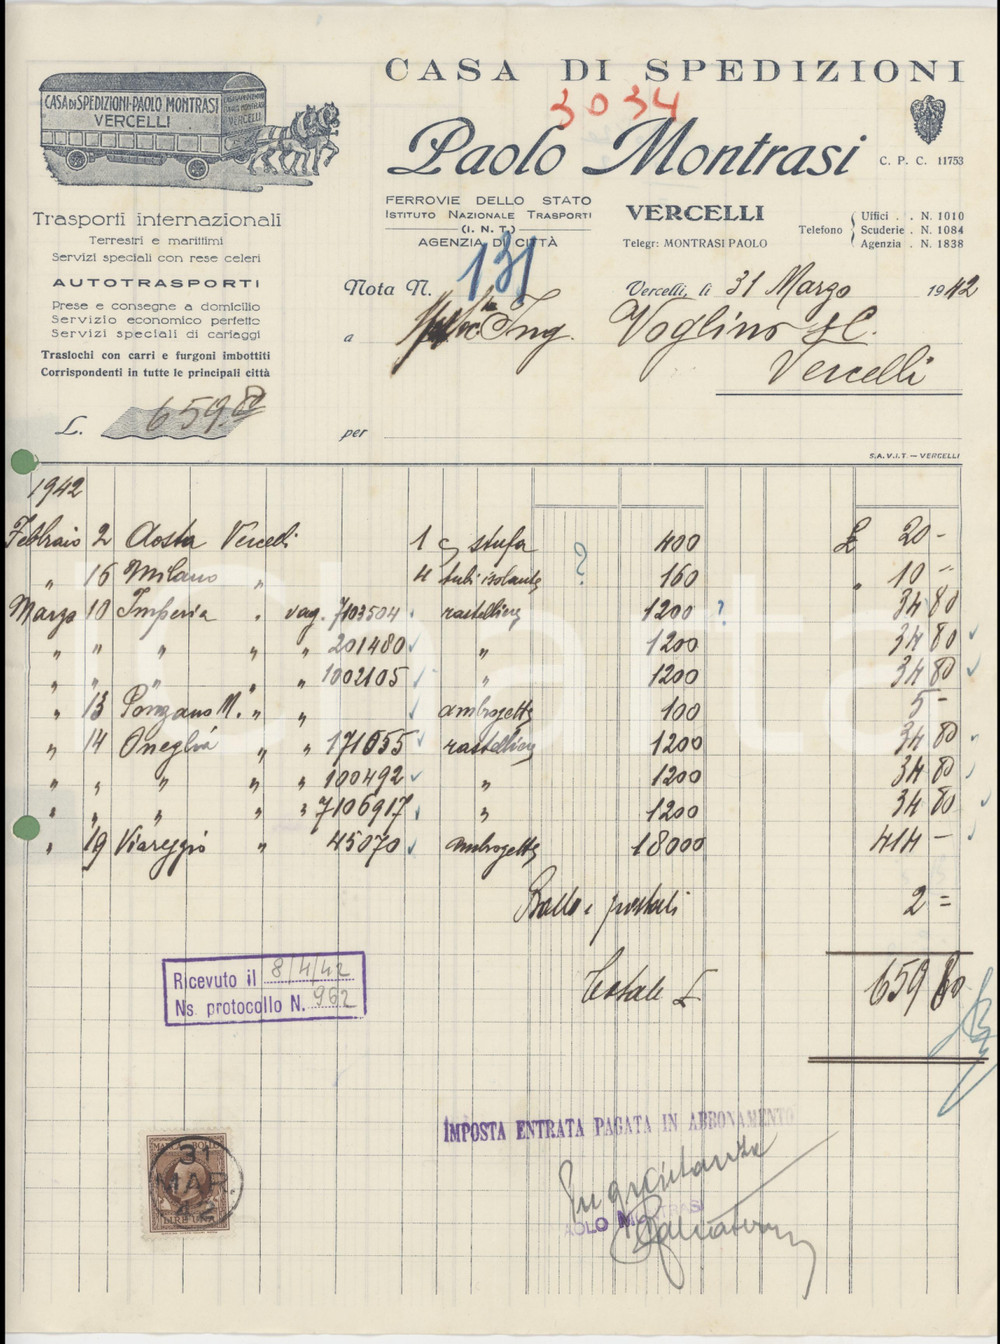 CASA DI SPEDIZIONI
3034
Paolo Montrasi
C. P. C. 11753
CASA DI SPEDIZIONI-PAOLO MONTRASI
VERCELLI
VERCELLI
FERROVIE DELLO STATO
ISTITUTO NAZIONALE TRASPORTI
(I. N. T.)
AGENZIA DI CITTÀ
VERCELLI
Telegr: MONTRASI PAOLO
Telefono
Uffici . . N. 1010
Scuderie . N. 1084
Agenzia . N. 1838
Trasporti internazionali
Terrestri e marittimi
Servizi speciali con rese celeri
AUTOTRASPORTI
Prese e consegne a domicilio
Servizio economico perfetto
Servizi speciali di cariaggi
Traslochi con carri e furgoni imbottiti
Corrispondenti in tutte le principali città
Nota N. 131
Vercelli, li 31 Marzo 1942
a Ing. Voglino & C.
Vercelli
L. 659.80
per
S.A.V.I.T. — VERCELLI
1942
Febbraio 2 Aosta Vercelli 1 g stufa ? 400 £ 20 -
" 16 Milano " 4 tubi isolante 160 " 10 -
Marzo 10 Imperia " vag. 7103504 rastelliera 1200 ? 34 80
" " " " " 201480 " 1200 34 80
" " " " " 1002105 " 1200 34 80
" 13 Ponzano M. " " ambrogetta 100 5 -
" 14 Oneglia " " 171655 rastelliera 1200 34 80
" " " " " 100492 " 1200 34 80
" " " " " 7106917 " 1200 34 80
" 19 Viareggio " 45070 ambrogette 18000 414 -
Bollo e postali 2 =
Totale £ 659 80
Ricevuto il 8/4/42
Ns. protocollo N. 962
IMPOSTA ENTRATA PAGATA IN ABBONAMENTO
AOLO MONTRASI
31
MAR.
42
LIRE UNA